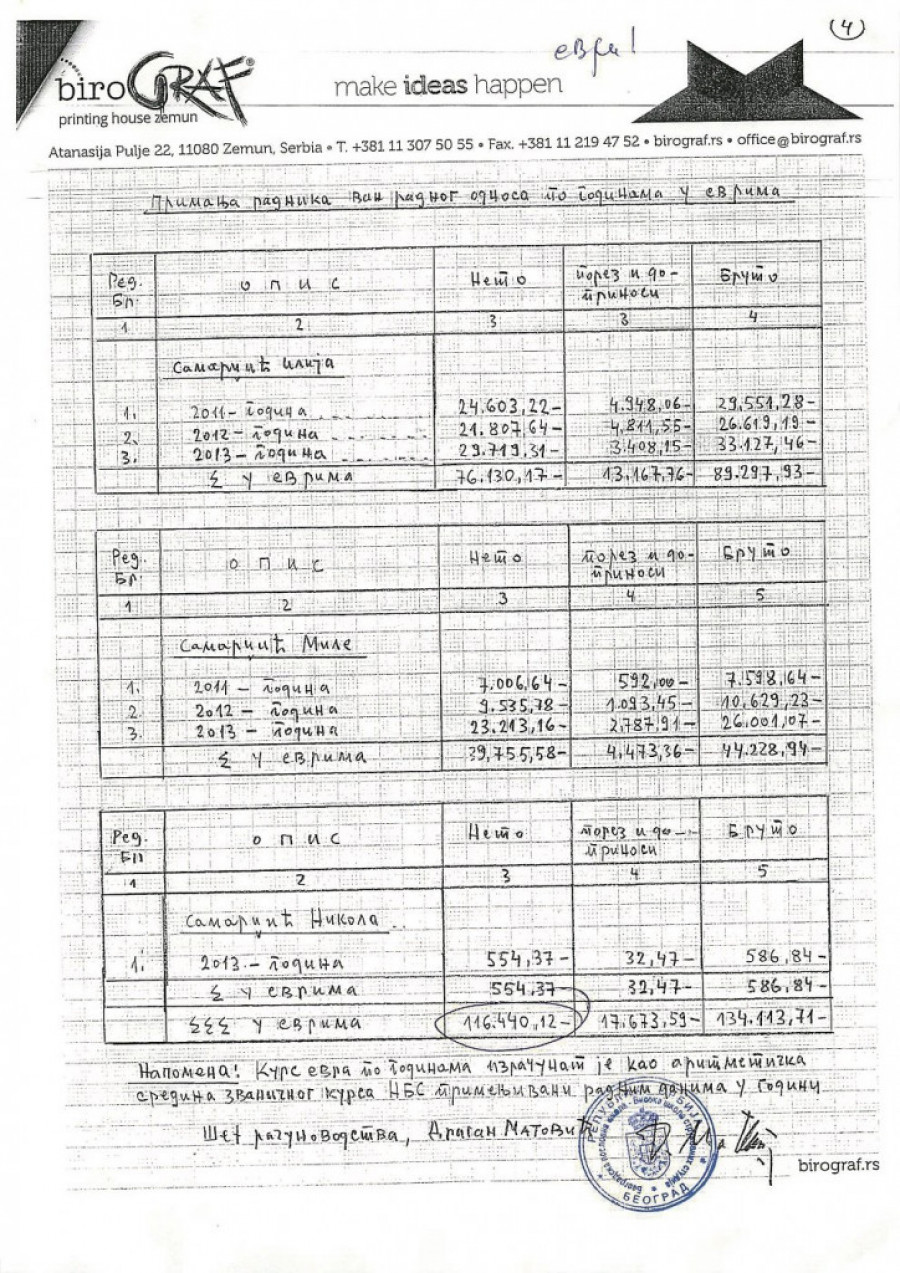 (4)
еври!
biro GRAF®
printing house zemun
make ideas happen
Atanasija Pulje 22, 11080 Zemun, Serbia • T. +381 11 307 50 55 • Fax. +381 11 219 47 52 • birograf.rs • office@birograf.rs
Примања радника ван радног односа по годинама у еврима
Ред. Бр. О п и с Нето порез и до-приноси Бруто
1 2 3 3 4
Самарџић Илија
1. 2011 - година 24.603,22- 4.948,06- 29.551,28-
2. 2012 - година 21.807,64- 4.811,55- 26.619,19-
3. 2013 - година 29.719,31- 3.408,15- 33.127,46-
Σ у еврима 76.130,17- 13.167,76- 89.297,93-
Ред. Бр. О п и с Нето порез и до-приноси Бруто
1 2 3 4 5
Самарџић Миле
1. 2011 - година 7.006,64- 592,00- 7.598,64-
2. 2012 - година 9.535,78- 1.093,45- 10.629,23-
3. 2013 - година 23.213,16- 2.787,91- 26.001,07-
Σ у еврима 39.755,58- 4.473,36- 44.228,94-
Ред. Бр О п и с Нето порез и до-приноси Бруто
1 2 3 4 5
Самарџић Никола
1. 2013. - година 554,37- 32,47- 586,84-
Σ у еврима 554,37- 32,47- 586,84-
ΣΣΣ у еврима 116.440,12- 17.673,59- 134.113,71-
Напомена! Курс евра по годинама израчунат је као аритметичка
средина званичног курса НБС примењивани радним данима у години
Шеф рачуноводства, Драган Матовић
БЕОГРАД
birograf.rs